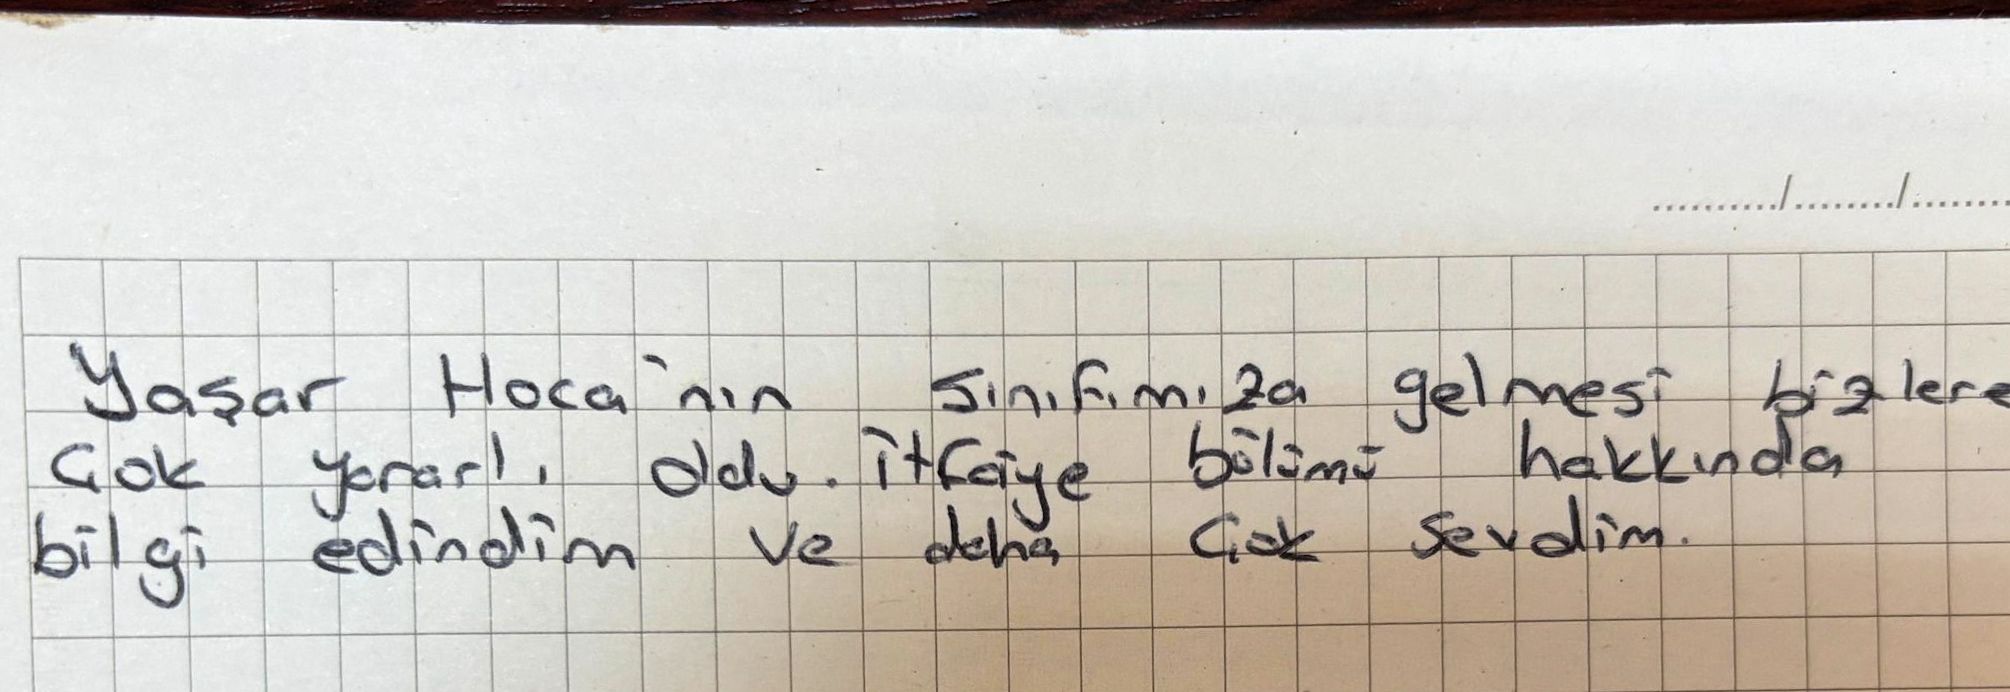 Yaşar Hoca'nın sınıfımıza gelmesi bizlere
çok yararlı oldu. itfaiye bölümü hakkında
bilgi edindim ve daha çok sevdim.